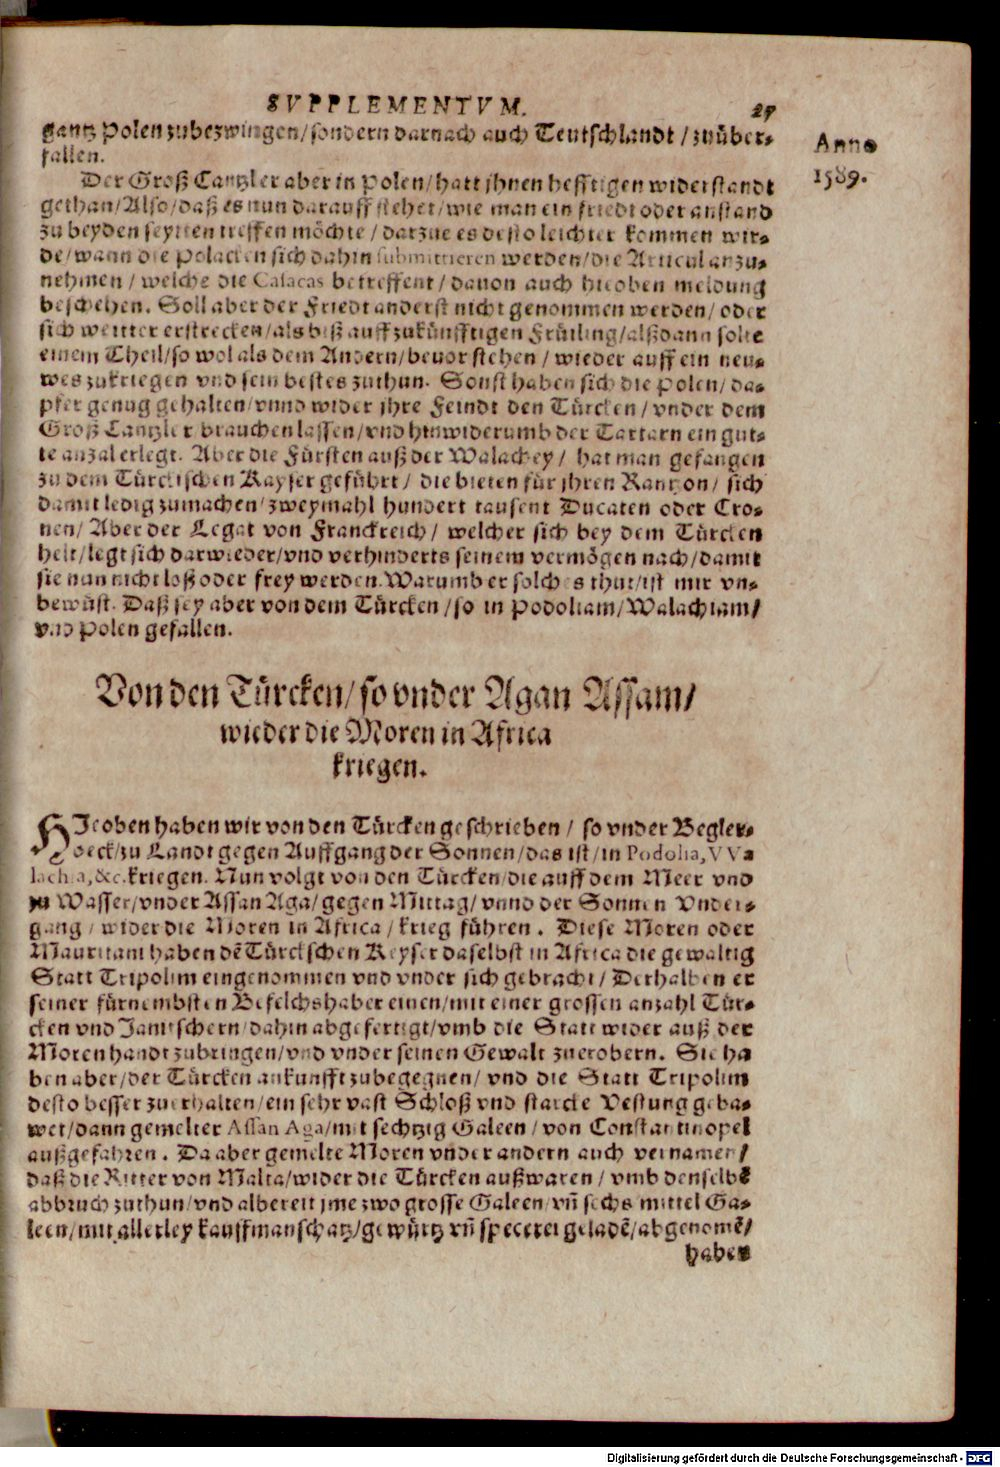 SVPPLEMENTVM. 27
gantz Polen zubezwingen/sondern darnach auch Teutschlandt/zuüber-
fallen.
Anno
1589.
Der Groß Cantzler aber in Polen/hatt jhnen hefftigen widerstandt
gethan/Also/daß es nun darauff stehet/wie man ein friedt oder anstand
zu beyden seytten treffen möchte/darzue es desto leichter kommen wir-
de/wann die Polacken sich dahin submittieren werden/die Articul anzu-
nehmen/welche die Casacas betreffent/dauon auch hieoben meldung
beschehen. Soll aber der Friedt anderst nicht genommen werden/oder
sich weitter erstrecken/als biß auff zukünfftigen Früling/alßdann solte
einem Theil/so wol als dem Andern/beuor stehen/wieder auff ein neu-
wes zukriegen vnd sein bestes zuthun. Sonst haben sich die Polen/da-
pfer genug gehalten/vnnd wider jhre Feindt den Türcken/vnder dem
Groß Cantzler brauchen lassen/vnd hinwiderumb der Tartarn ein gut-
te anzal erlegt. Aber die Fürsten auß der Walachey/hat man gefangen
zu dem Türckischen Kayser geführt/die bieten für jhren Rantzon/sich
damit ledig zumachen/zweymahl hundert tausent Ducaten oder Cro-
nen/Aber der Legat von Franckreich/welcher sich bey dem Türcken
helt/legt sich darwieder/vnd verhinderts seinem vermögen nach/damit
sie nun nicht loß oder frey werden. Warumb er solches thut/ist mir vn-
bewüst. Daß sey aber von dem Türcken/so in Podoliam/Walachiam/
vnd Polen gefallen.
Von den Türcken/so vnder Agan Assam/
wieder die Moren in Africa
kriegen.
HIeoben haben wir von den Türcken geschrieben/so vnder Begler-
beck/zu Landt gegen Auffgang der Sonnen/das ist/in Podolia, VVa
lachia, &c. kriegen. Nun volgt von den Türcken/die auff dem Meer vnd
zu Wasser/vnder Assan Aga/gegen Mittag/vnnd der Sonnen Vnder-
gang/wider die Moren in Africa/krieg führen. Diese Moren oder
Mauritani haben dē Türckschen Keyser daselbst in Africa die gewaltig
Statt Tripolim eingenommen vnd vnder sich gebracht/Derhalben er
seiner fürnembsten Befelchshaber einen/mit einer grossen anzahl Tür-
cken vnd Janitschern/dahin abgefertigt/vmb die Statt wider auß der
Moren handt zubringen/vnd vnder seinen Gewalt zuerobern. Sie ha
ben aber/der Türcken ankunfft zubegegnen/vnd die Statt Tripolim
desto besser zuerhalten/ein sehr vast Schloß vnd starcke Vestung geba-
wet/dann gemelter Assan Aga/mit sechtzig Galeen/von Constantinopel
außgefahren. Da aber gemelte Moren vnder andern auch vernamen/
daß die Ritter von Malta/wider die Türcken außwaren/vmb denselbē
abbruch zuthun/vnd albereit jme zwo grosse Galeen/vñ sechs mittel Ga-
leen/mit allerley kauffmanschatz/gewürtz vñ specerei geladē/abgenomē/
haben
Digitalisierung gefördert durch die Deutsche Forschungsgemeinschaft - DFG